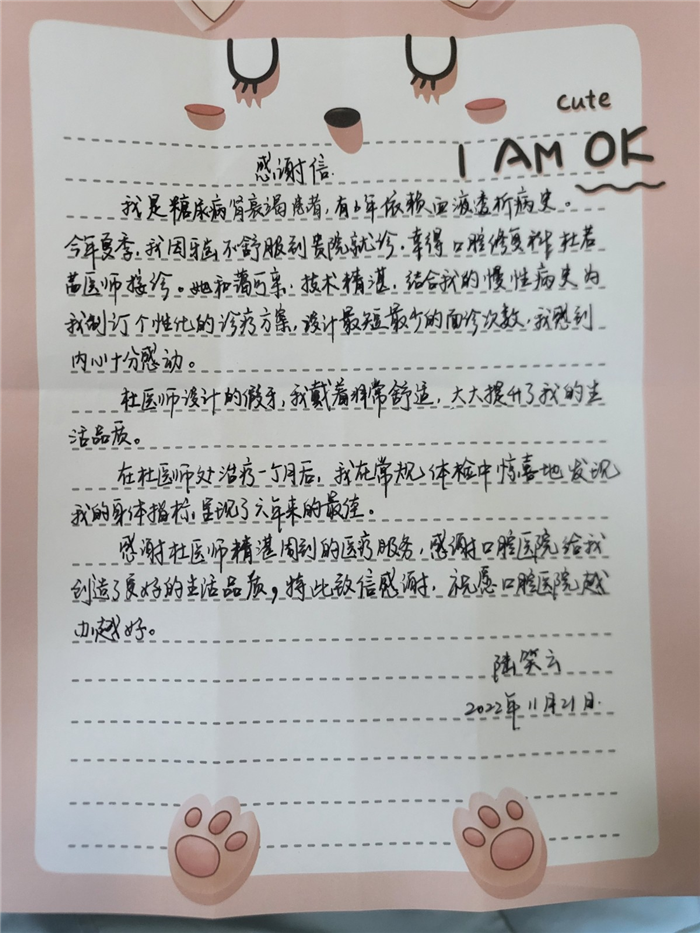 cute
I AM OK
感谢信.
我是糖尿病肾衰竭患者,有6年依赖血液透析病史。
今年夏季,我因牙齿不舒服到贵院就诊.幸得口腔修复科杜若
茜医师接诊。她和蔼可亲,技术精湛,结合我的慢性病史为
我制订个性化的诊疗方案,设计最短最少的面诊次数,我感到
内心十分感动。
杜医师设计的假牙,我戴着非常舒适,大大提升了我的生
活品质。
在杜医师处治疗一个月后,我在常规体检中惊喜地发现
我的身体指标,呈现了六年来的最佳。
感谢杜医师精湛周到的医疗服务,感谢口腔医院给我
创造了更好的生活品质,特此致信感谢,祝愿口腔医院越
办越好。
陆笑云
2022年11月21日.